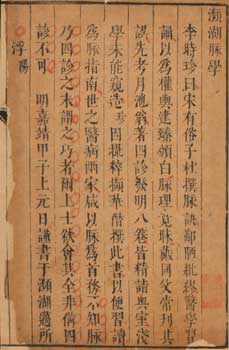 瀕湖脈學
李時珍曰宋有俗子杜撰脈訣鄙陋紕繆醫學習
誦以為權輿逮臻頒白脈理竟昧戴同父常刊其
誤先考月池翁著四診發明八卷皆精詣奧室淺
學未能窺造珍因撮粹擷華僭撰此書以便習讀
為脈指南世之醫病兩家咸以脈為首務不知脈
乃四診之末謂之巧者爾上士欲會其全非備四
診不可 明嘉靖甲子上元日謹書于瀕湖薖所
浮 陽